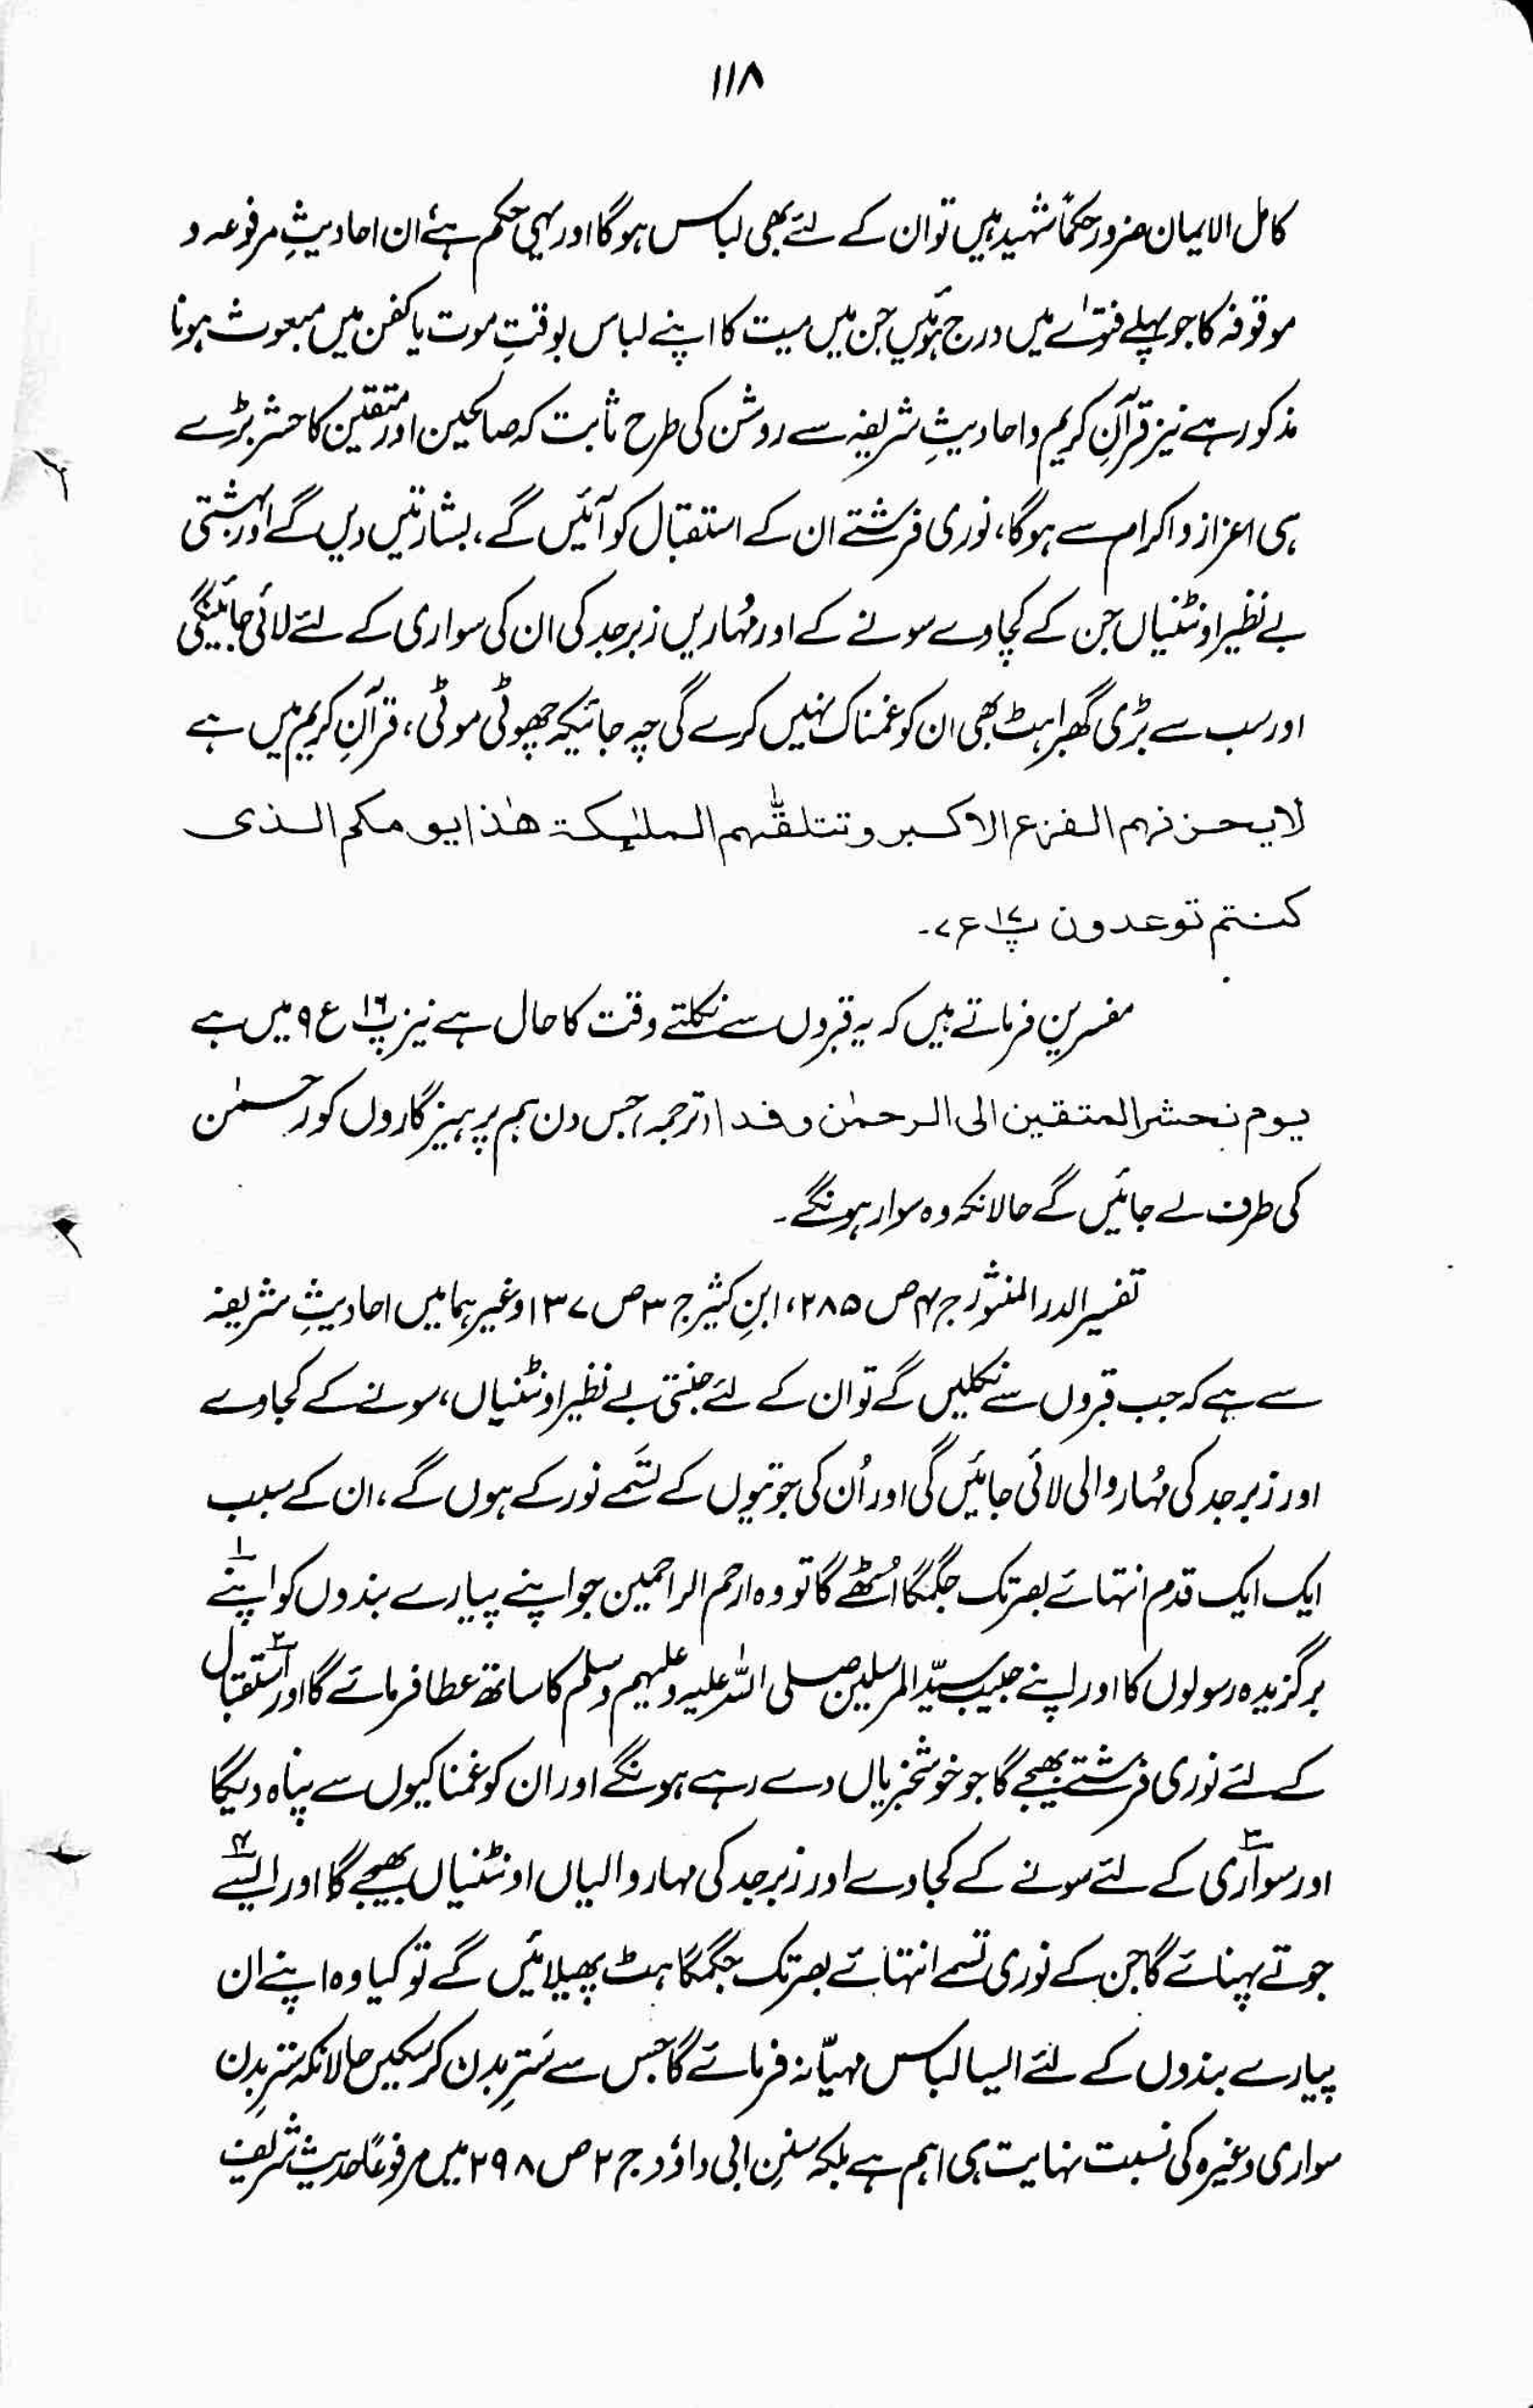 ۱۱۸
کامل الایمان ضرور حکماً شہید ہیں تو ان کے لئے بھی لباس ہوگا اور یہی حکم ہے ان احادیثِ مرفوعہ و
موقوفہ کا جو پہلے فتوٰے میں درج ہوئیں جن میں میت کا اپنے لباس بوقتِ موت یا کفن میں مبعوث ہونا
مذکور ہے نیز قرآنِ کریم و احادیثِ شریفہ سے روشن کی طرح ثابت کہ صالحین اور متقین کا حشر بڑے
ہی اعزاز و اکرام سے ہوگا، نوری فرشتے ان کے استقبال کو آئیں گے، بشارتیں دیں گے اور بہشتی
بے نظیر اونٹنیاں جن کے کچاوے سونے کے اور مُہاریں زبرجد کی ان کی سواری کے لئے لائی جائینگی
اور سب سے بڑی گھبراہٹ بھی ان کو غمناک نہیں کرے گی چہ جائیکہ چھوٹی موٹی، قرآنِ کریم میں ہے
لا یحزنہم الفزع الاکبر و تتلقّٰہم الملٰئکۃ ھٰذا یومکم الذی
کنتم توعدون پ۱۷ ع۷۔
مفسرین فرماتے ہیں کہ یہ قبروں سے نکلتے وقت کا حال ہے نیز پ۱۶ ع۹ میں ہے
یوم نحشر المتقین الی الرحمٰن وفدا (ترجمہ) جس دن ہم پرہیزگاروں کو رحمٰن
کی طرف لے جائیں گے حالانکہ وہ سوار ہونگے۔
تفسیر الدر المنثور ج۴ ص ۲۸۵، ابنِ کثیر ج ۳ ص ۱۳۷ وغیرہما میں احادیثِ شریفہ
سے ہے کہ جب قبروں سے نکلیں گے تو ان کے لئے جنتی بے نظیر اونٹنیاں، سونے کے کجاوے
اور زبرجد کی مُہار والی لائی جائیں گی اور اُن کی جوتیوں کے تسمے نور کے ہوں گے، ان کے سبب
ایک ایک قدم انتہائے بصر تک جگمگا اُٹھے گا تو وہ ارحم الراحمین جو اپنے پیارے بندوں کو ۱اپنے
برگزیدہ رسولوں کا اور اپنے حبیب سیّد المرسلین صلی اللہ علیہ وعلیہم وسلم کا ساتھ عطا فرمائے گا اور ۲استقبال
کے لئے نوری فرشتے بھیجے گا جو خوشخبریاں دے رہے ہونگے اور ان کو غمناکیوں سے پناہ دیگا
اور ۳سواری کے لئے سونے کے کجاوے اور زبرجد کی مہار والیاں اونٹنیاں بھیجے گا اور ۴ایسے
جوتے پہنائے گا جن کے نوری تسمے انتہائے بصر تک جگمگاہٹ پھیلائیں گے تو کیا وہ اپنے ان
پیارے بندوں کے لئے ایسا لباس مہیّا نہ فرمائے گا جس سے سَترِ بدن کر سکیں حالانکہ سترِ بدن
سواری وغیرہ کی نسبت نہایت ہی اہم ہے بلکہ سننِ ابی داؤد ج ۲ ص ۲۹۸ میں مرفوعاً حدیث شریف